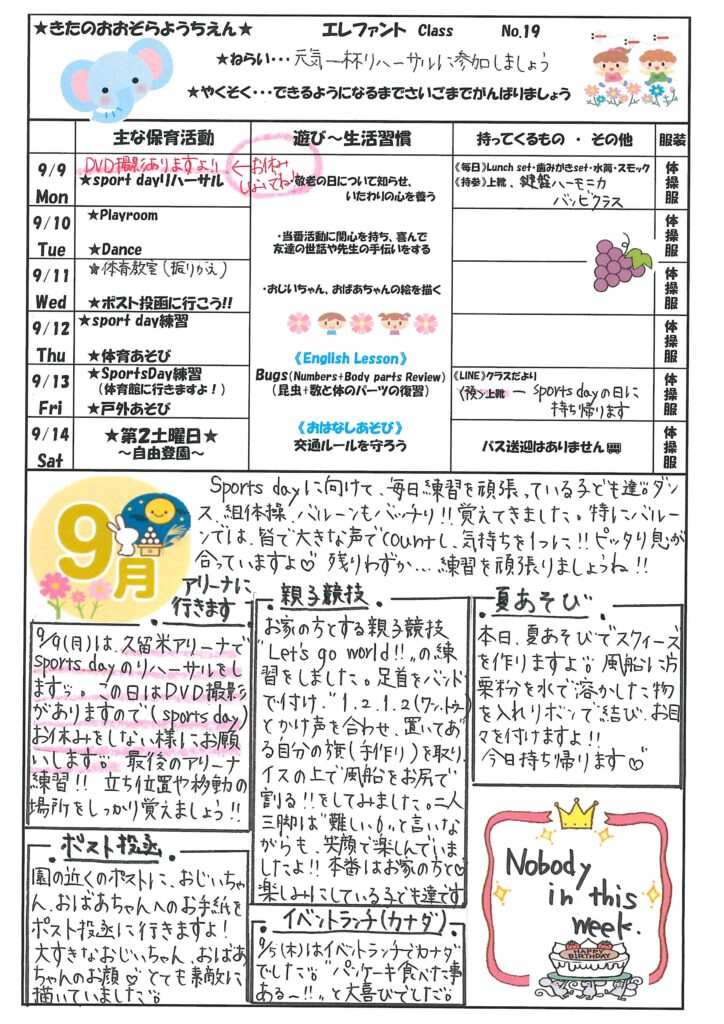 ★きたのおおぞらようちえん★ エレファント Class No.19
★ねらい・・・元気一杯リハーサルに参加しましょう
★やくそく・・・できるようになるまでさいごまでがんばりましょう
主な保育活動 遊び～生活習慣 持ってくるもの ・ その他 服装
9/9 Mon
DVD撮影ありますよ!! ←お休みしないでね!
★sport dayリハーサル
・敬老の日について知らせ、
いたわりの心を養う
《毎日》Lunch set・歯みがきset・水筒・スモック
《持参》上靴、鍵盤ハーモニカ
バッピクラス
体操服
9/10 Tue
★Playroom
★Dance
・当番活動に関心を持ち、喜んで
友達の世話や先生の手伝いをする
体操服
9/11 Wed
☆体育教室(振りかえ)
★ポスト投函に行こう!!
・おじいちゃん、おばあちゃんの絵を描く
体操服
9/12 Thu
★sport day練習
★体育あそび
《English Lesson》
体操服
9/13 Fri
★SportsDay練習
(体育館に行きますよ!)
★戸外あそび
Bugs(Numbers+Body parts Review)
(昆虫+数と体のパーツの復習)
《LINE》クラスだより
上靴 — sports dayの日に
持ち帰ります
体操服
9/14 Sat
★第2土曜日★
～自由登園～
《おはなしあそび》
交通ルールを守ろう
バス送迎はありません
体操服
9月
Sports dayに向けて、毎日練習を頑張っている子ども達。ダン
ス、組体操、バルーンもバッチリ!!覚えてきました。特にバルー
ンでは、皆で大きな声でcountし、気持ちを1つに!!ピッタリ息が
合っていますよ♡ 残りわずか…練習を頑張りましょうね!!
アリーナに
行きます
9/9(月)は、久留米アリーナで
sports dayのリハーサルをし
ます。この日はDVD撮影
がありますので(sports day)
お休みをしない様にお願
いします。最後のアリーナ
練習!! 立ち位置や移動の
場所をしっかり覚えましょう!!
親子競技
お家の方とする親子競技
"Let's go world!!"の練
習をしました。足首をバンド
で付け、"1.2.1.2(ワントゥー)
とかけ声を合わせ、置いてあ
る自分の旗(手作り)を取り、
イスの上で風船をお尻で
割る!!をしてみました。二人
三脚は"難しい"と言いな
がらも、笑顔で楽しんでい
ましたよ!!本番はお家の方と♡
楽しみにしている子ども達です
夏あそび
本日、夏あそびでスクィーズ
を作りますよ。風船に片
栗粉を水で溶かした物
を入れリボンで結び、お目
々を付けますよ!!
今日持ち帰ります♡
ポスト投函
園の近くのポストに、おじいちゃ
ん、おばあちゃんへのお手紙を
ポスト投函に行きますよ!
大すきなおじいちゃん、おばあ
ちゃんのお顔♡とても素敵に
描いていました。
イベントランチ(カナダ)
9/5(木)はイベントランチでカナダ
でした。"パンケーキ食べた事
ある～!!"と大喜びでした。
Nobody
in this
week.
HAPPY
BIRTHDAY